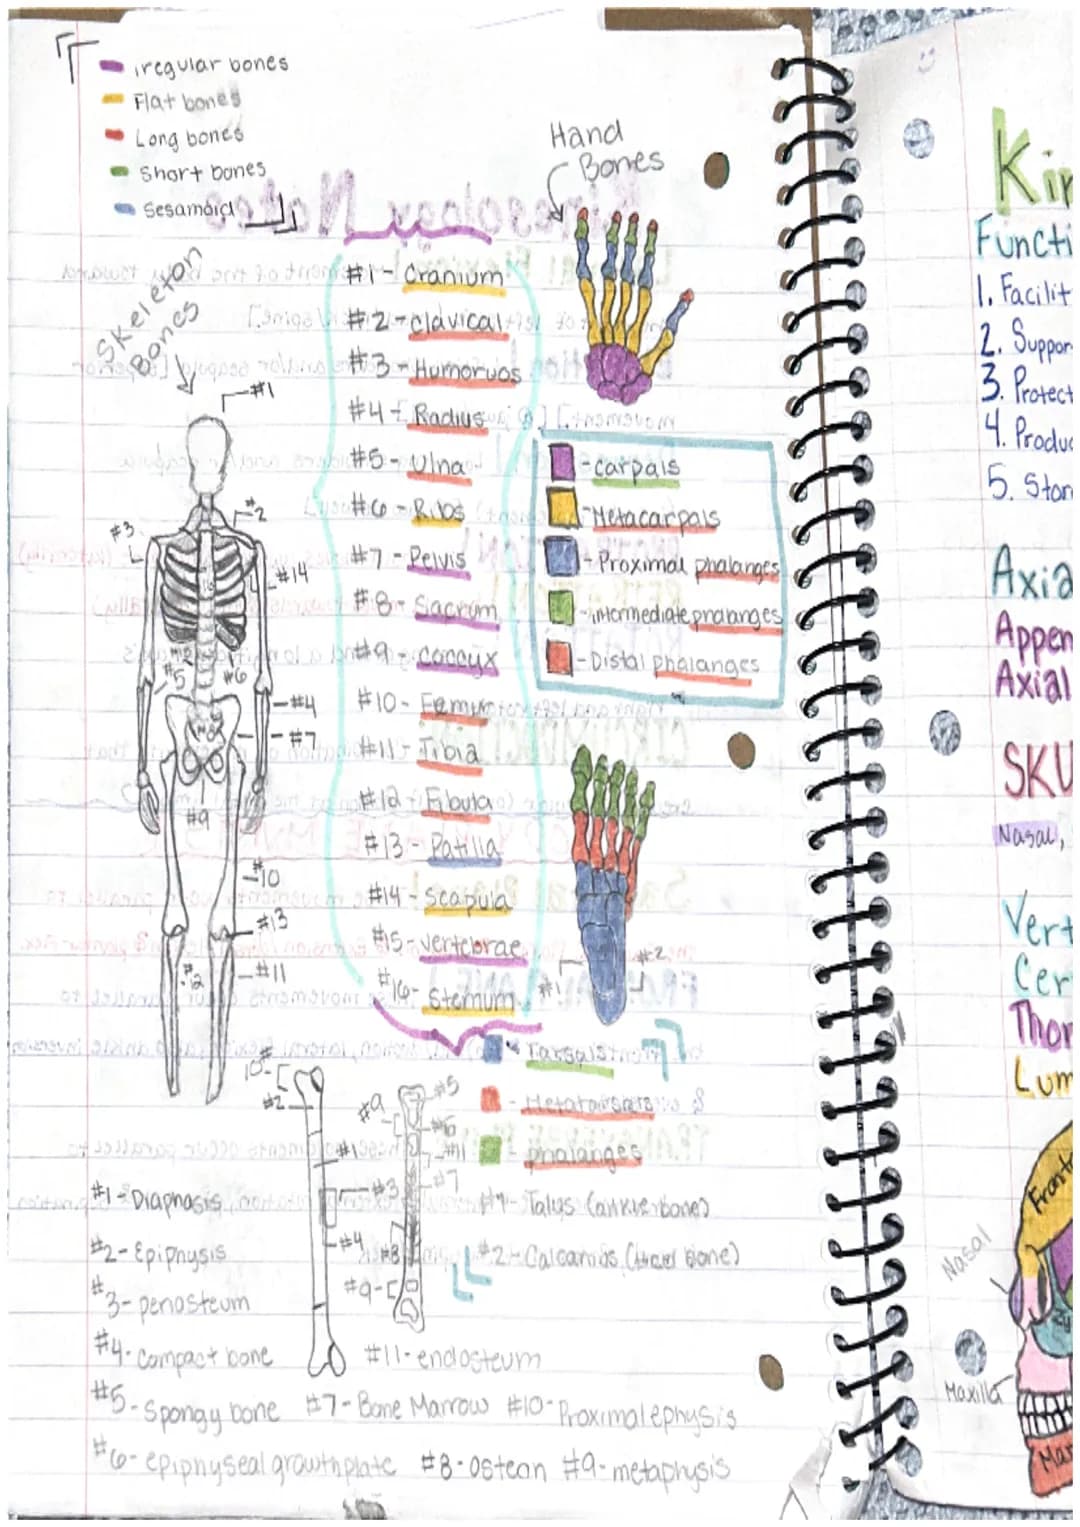 irregular bones
Flat bones
Long bones
Short bones
Sesamoid
Skeleton
Bones
Hand
Bones
#1 - Cranium
#2 - clavical
#3 - Humoruos
#4 - Radius
#5 - Ulna
#6 - Ribs
#7 - Pelvis
#8 - Sacrum
#9 - coccyx
#10 - Femur
#11 - Tibia
#12 - Fibula
#13 - Patilla
#14 - Scapula
#15 - vertebrae
#16 - Sternum
- carpals
- Metacarpals
- Proximal phalanges
- intermediate phalanges
- Distal phalanges
#1
#2
#3
#14
#5
#6
#4
#7
#9
#10
#13
#11
#2
#1
#2
- Tarsals
- Metatarsals
- phalanges
#1 - Talus (ankle bone)
#2 - Calcanius (heel bone)
10#
#2
#1
#3
#4
#9
#5
#6
#11
#7
#8
#9
#1 - Diaphysis
#2 - Epiphysis
#3 - periosteum
#4 - compact bone
#11 - endosteum
#5 - Spongy bone #7 - Bone Marrow #10 - Proximal ephysis
#6 - epiphyseal growth plate #8 - Ostean #9 - metaphysis
Functi
1. Facilit
2. Suppor
3. Protect
4. Produc
5. Stor
Axia
Appen
Axial
SKU
Nasal,
Vert
Cer
Thor
Lum
Nasal
Maxilla